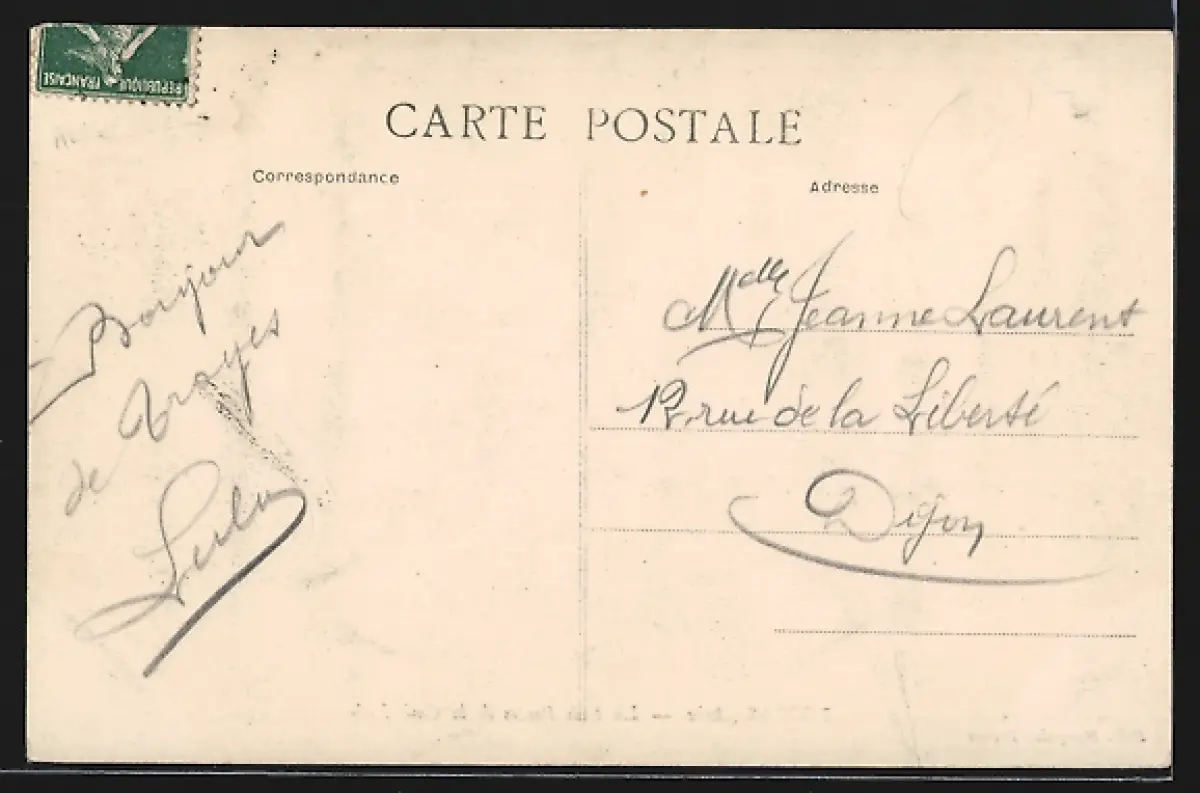 REPUBLIQUE FRANÇAISE
CARTE POSTALE
Correspondance
Adresse
Bonjour
de Troyes
Mdlle Jeanne Laurent
12, rue de la Liberté
Dijon